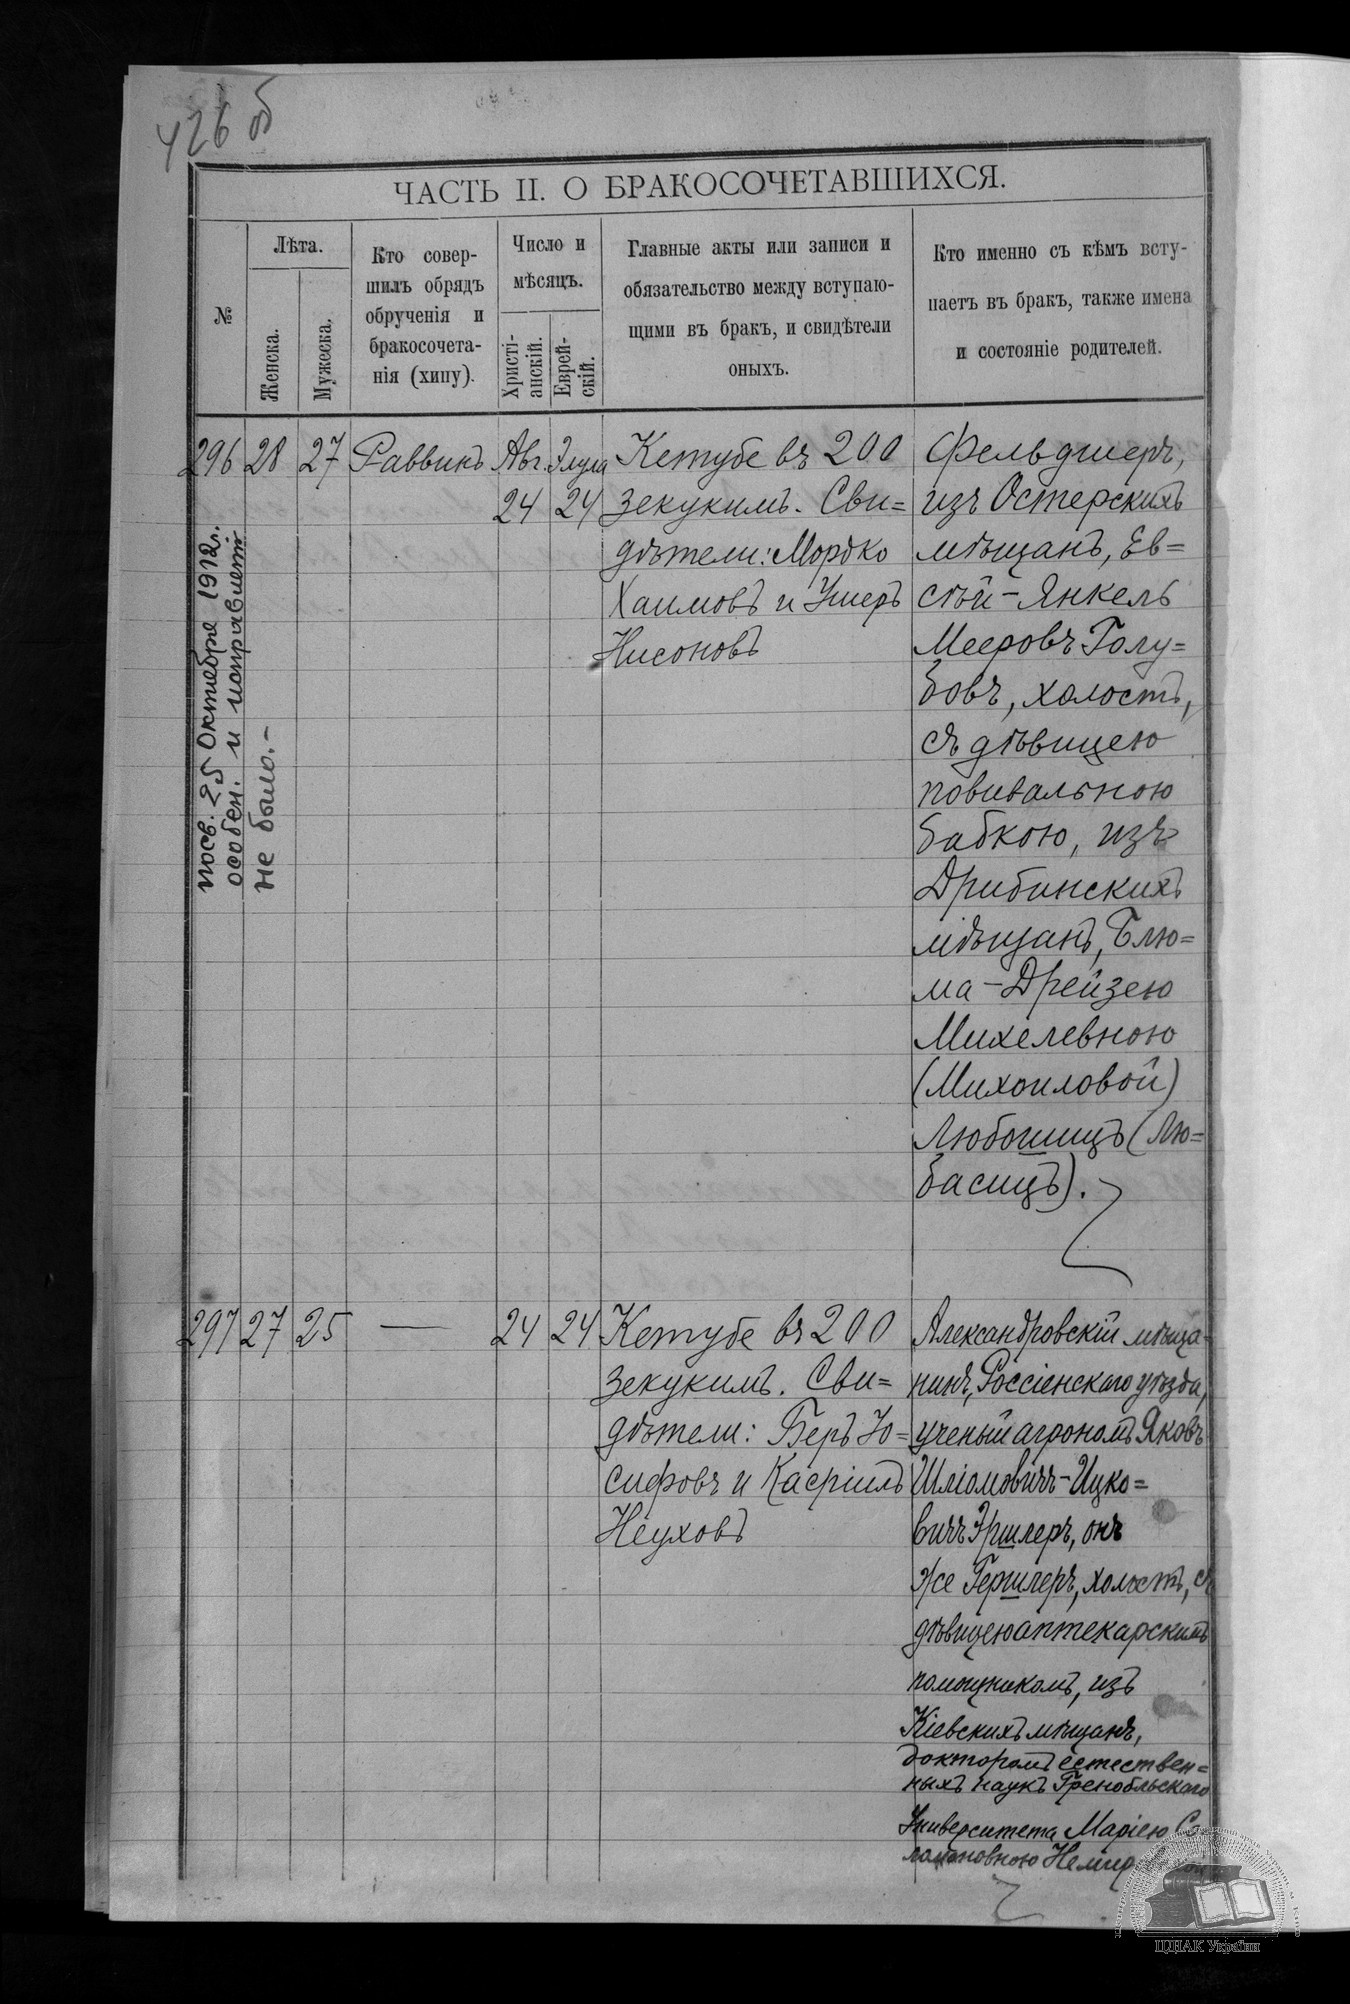 426 об
ЧАСТЬ II. О БРАКОСОЧЕТАВШИХСЯ.
№
Лѣта.
Женска.
Мужеска.
Кто совер-
шилъ обрядъ
обрученія и
бракосочета-
нія (хипу).
Число и
мѣсяцъ.
Христі-
анскій.
Еврей-
скій.
Главные акты или записи и
обязательство между вступаю-
щими въ бракъ, и свидѣтели
оныхъ.
Кто именно съ кѣмъ всту-
паетъ въ бракъ, также имена
и состояніе родителей.
296 28 27 Раввинъ Авг. Элула
24 24
Кетубе въ 200
зекукимъ. Сви=
дѣтели: Мордко
Хаимовъ и Ушеръ
Нисоновъ
Фельдшеръ,
изъ Остерскихъ
мѣщанъ, Ев=
сѣй-Янкель
Мееровъ Голу=
бовъ, холостъ,
съ дѣвицею
повивальною
бабкою, изъ
Дрибинскихъ
мѣщанъ, Блю=
ма-Дрейзею
Михелевною
(Михоиловой)
Любошицъ (Лю=
басицъ).
посв. 25 Октября 1912 г.
особен. и исправлет
не было.-
297 27 25 — 24 24
Кетубе въ 200
зекукимъ. Сви=
дѣтели: Беръ Іо=
сифовъ и Касріилъ
Неуховъ
Александровскій мѣща-
нинъ, Россіенскаго уѣзда,
ученый агрономъ Яковъ
Шліомовичъ-Ицко=
вичъ Эршлеръ, онъ
же Гершлеръ, холостъ, съ
дѣвицею аптекарскимъ
помощникомъ, изъ
Кіевскихъ мѣщанъ,
докторомъ естествен=
ныхъ наукъ Гренобльскаго
Университета Маріею Со-
ломоновною
ЦДІАК України